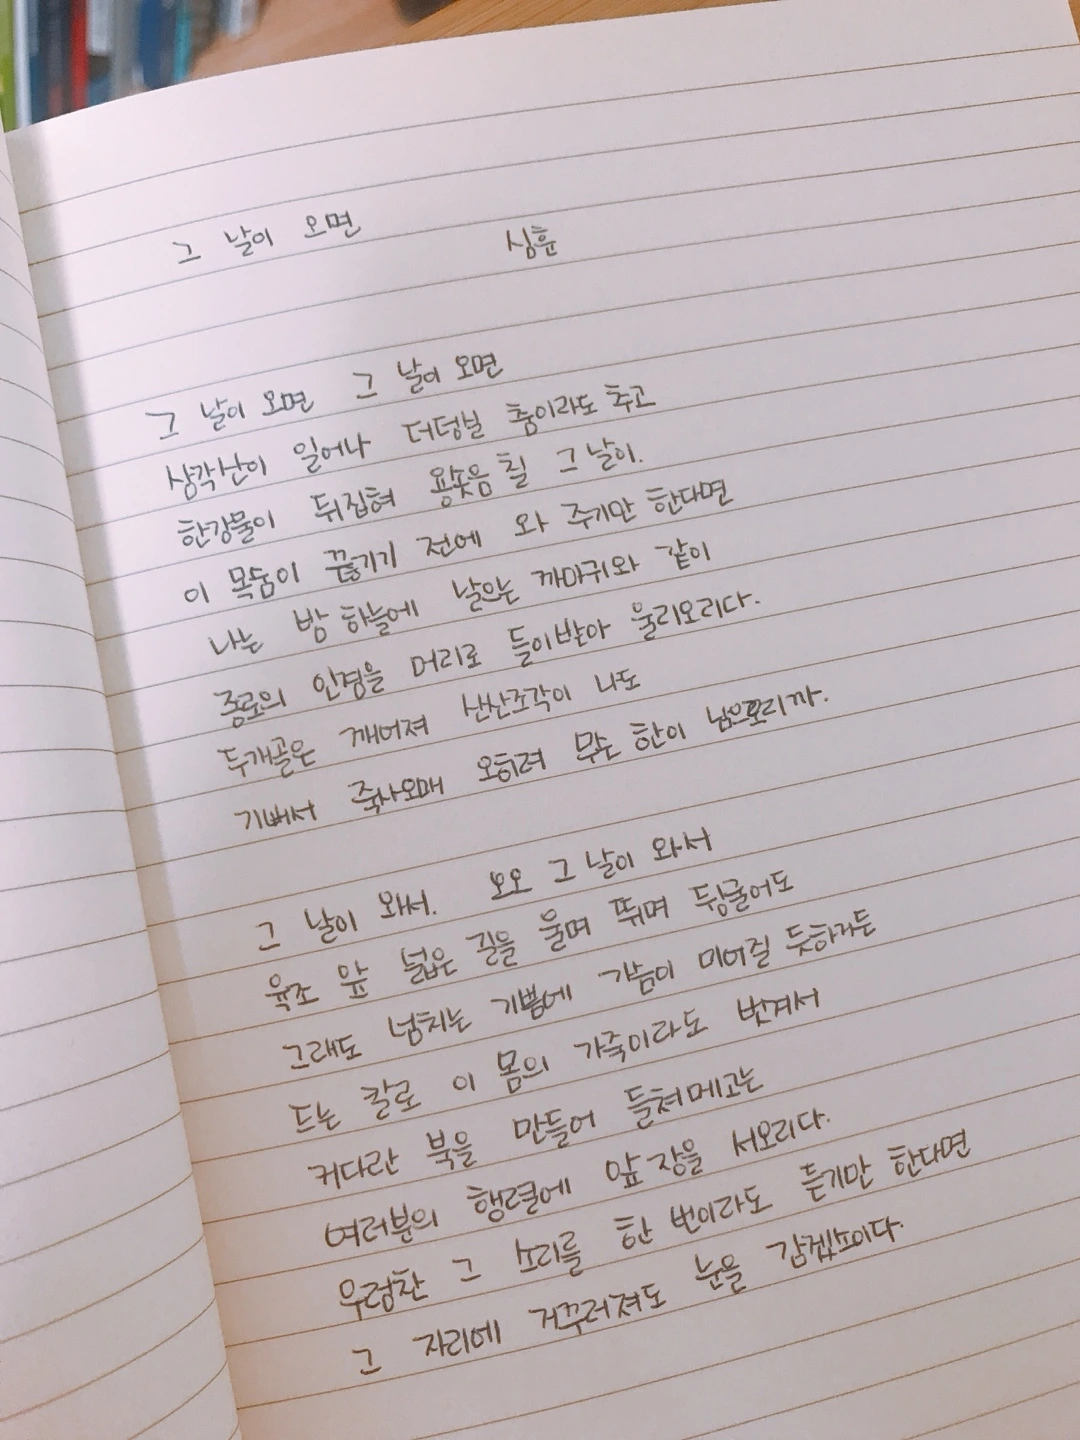 그 날이 오면 심훈
그 날이 오면 그 날이 오면
삼각산이 일어나 더덩실 춤이라도 추고
한강물이 뒤집혀 용솟음 칠 그 날이.
이 목숨이 끊기기 전에 와 주기만 한다면
나는 밤 하늘에 날으는 까마귀와 같이
종로의 인경을 머리로 들이받아 울리오리다.
두개골은 깨어져 산산조각이 나도
기뻐서 죽사오매 오히려 무슨 한이 남으오리까.
그 날이 와서. 오오 그 날이 와서
육조 앞 넓은 길을 울며 뛰며 뒹굴어도
그래도 넘치는 기쁨에 가슴이 미어질 듯하거든
드는 칼로 이 몸의 가죽이라도 벗겨서
커다란 북을 만들어 들쳐메고는
여러분의 행렬에 앞장을 서오리다.
우렁찬 그 소리를 한 번이라도 듣기만 한다면
그 자리에 거꾸러져도 눈을 감겠소이다.